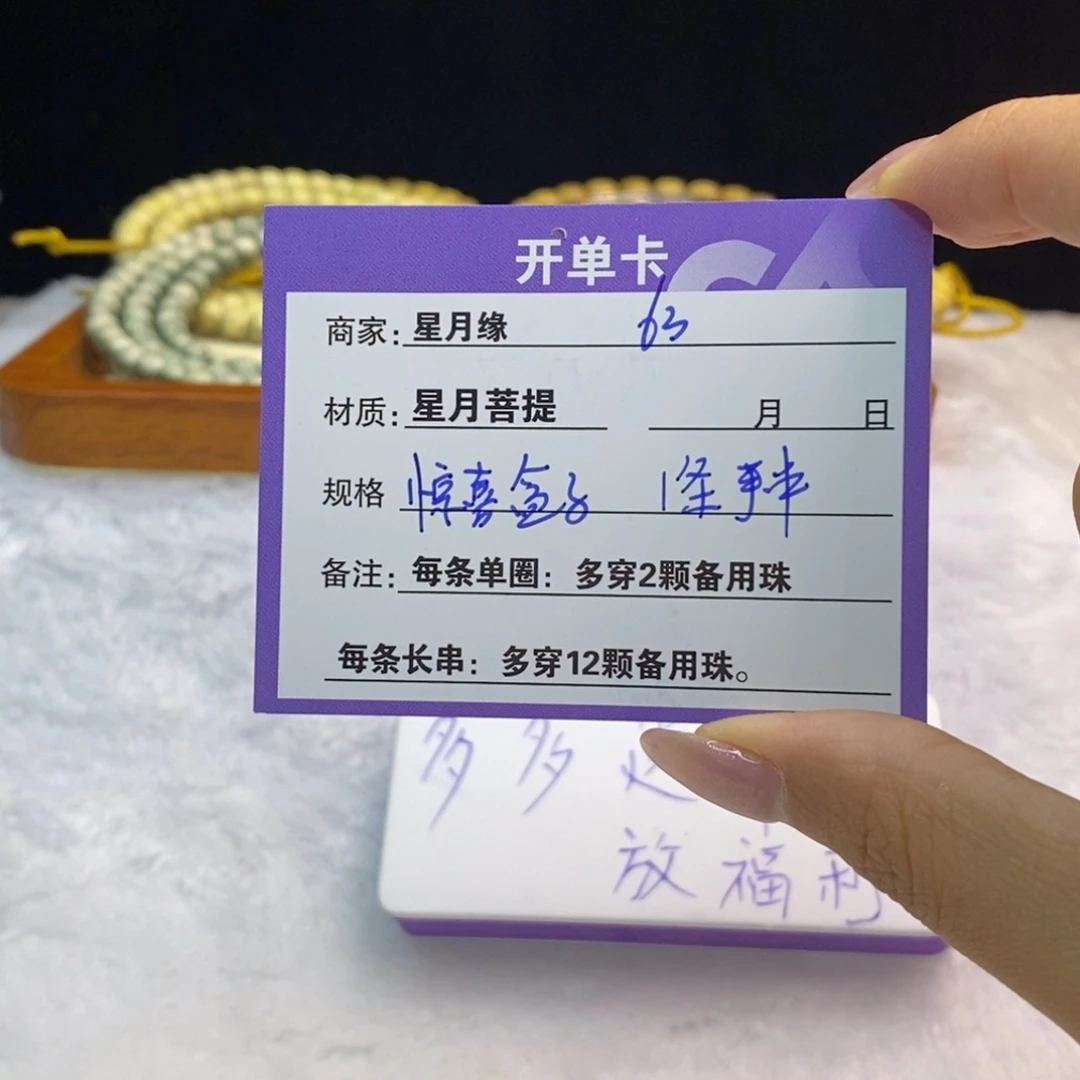 开单卡
商家：星月缘 63
材质：星月菩提 月 日
规格 惊喜盒子 1条手串
备注：每条单圈：多穿2颗备用珠
每条长串：多穿12颗备用珠。
多多
放福利